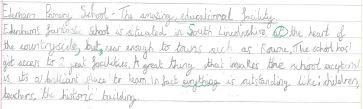 Edenham Primary School - The amazing, educational facility.
Edenhams fantastic school is situated in South Lincolnshire at the heart of
the countryside, but near enough to towns such as Bourne, The school has
got access to 2 great facilities. A great thing that makes this school exceptional
is its a brilliant place to learn in fact everything is outstanding like: children,
teachers, the historic building.